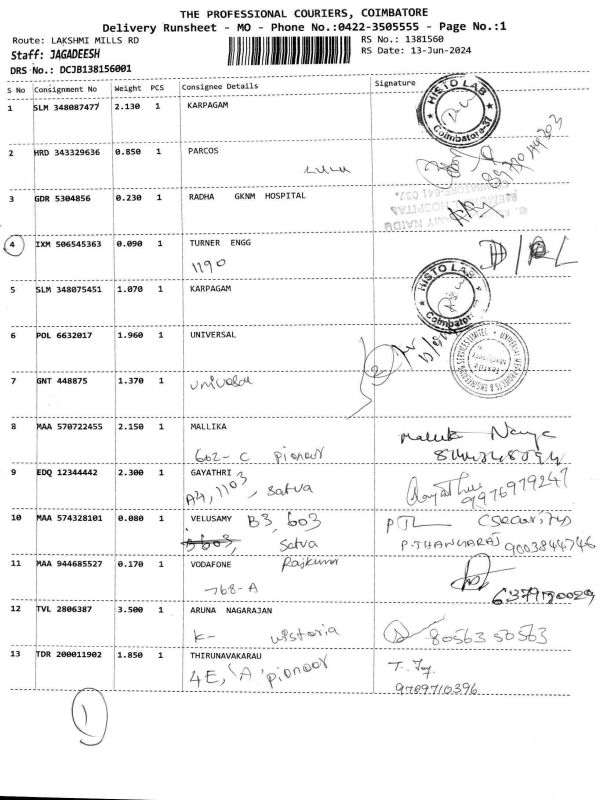 THE PROFESSIONAL COURIERS, COIMBATORE
Delivery Runsheet - MO - Phone No.:0422-3505555 - Page No.:1
Route: LAKSHMI MILLS RD RS No.: 1381560
Staff: JAGADEESH RS Date: 13-Jun-2024
DRS No.: DCJB138156001
S No Consignment No Weight PCS Consignee Details Signature
1 SLM 348087477 2.130 1 KARPAGAM
HISTO LAB
Coimbatore-37
2 HRD 343329636 0.850 1 PARCOS
3 GDR 5304856 0.230 1 RADHA GKNM HOSPITAL
4 IXM 506545363 0.090 1 TURNER ENGG
1190
5 SLM 348075451 1.070 1 KARPAGAM
HISTO LAB
Coimbatore
6 POL 6632017 1.960 1 UNIVERSAL
7 GNT 448875 1.370 1
8 MAA 570722455 2.150 1 MALLIKA
602-C pioneer
9 EDQ 12344442 2.300 1 GAYATHRI Gayathri
A4, 1103, satva 9976979247
10 MAA 574328101 0.080 1 VELUSAMY B3, 603
B603, Satva P.THANGARAJ 9003844746
11 MAA 944685527 0.170 1 VODAFONE Rajkumar
768-A 6379130029
12 TVL 2806387 3.500 1 ARUNA NAGARAJAN
K- wistoria 80563 50563
13 TDR 200011902 1.850 1 THIRUNAVAKARAU
4E, 'A' pioneer T. Jay
9709710396
1